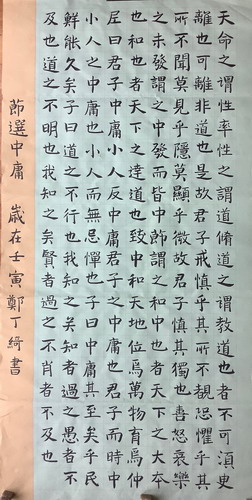 天命之謂性率性之謂道脩道之謂教道也者不可須臾
離也可離非道也是故君子戒慎乎其所不覩恐懼乎其
所不聞莫見乎隱莫顯乎微故君子慎其獨也喜怒哀樂
之未發謂之中發而皆中節謂之和中也者天下之大本
也和也者天下之達道也致中和天地位焉萬物育焉仲
尼曰君子中庸小人反中庸君子之中庸也君子而時中
小人之中庸也小人而無忌憚也子曰中庸其至矣乎民
鮮能久矣子曰道之不行也我知之矣知者過之愚者不
及也道之不明也我知之矣賢者過之不肖者不及也
節選中庸 歲在壬寅鄭丁綺書